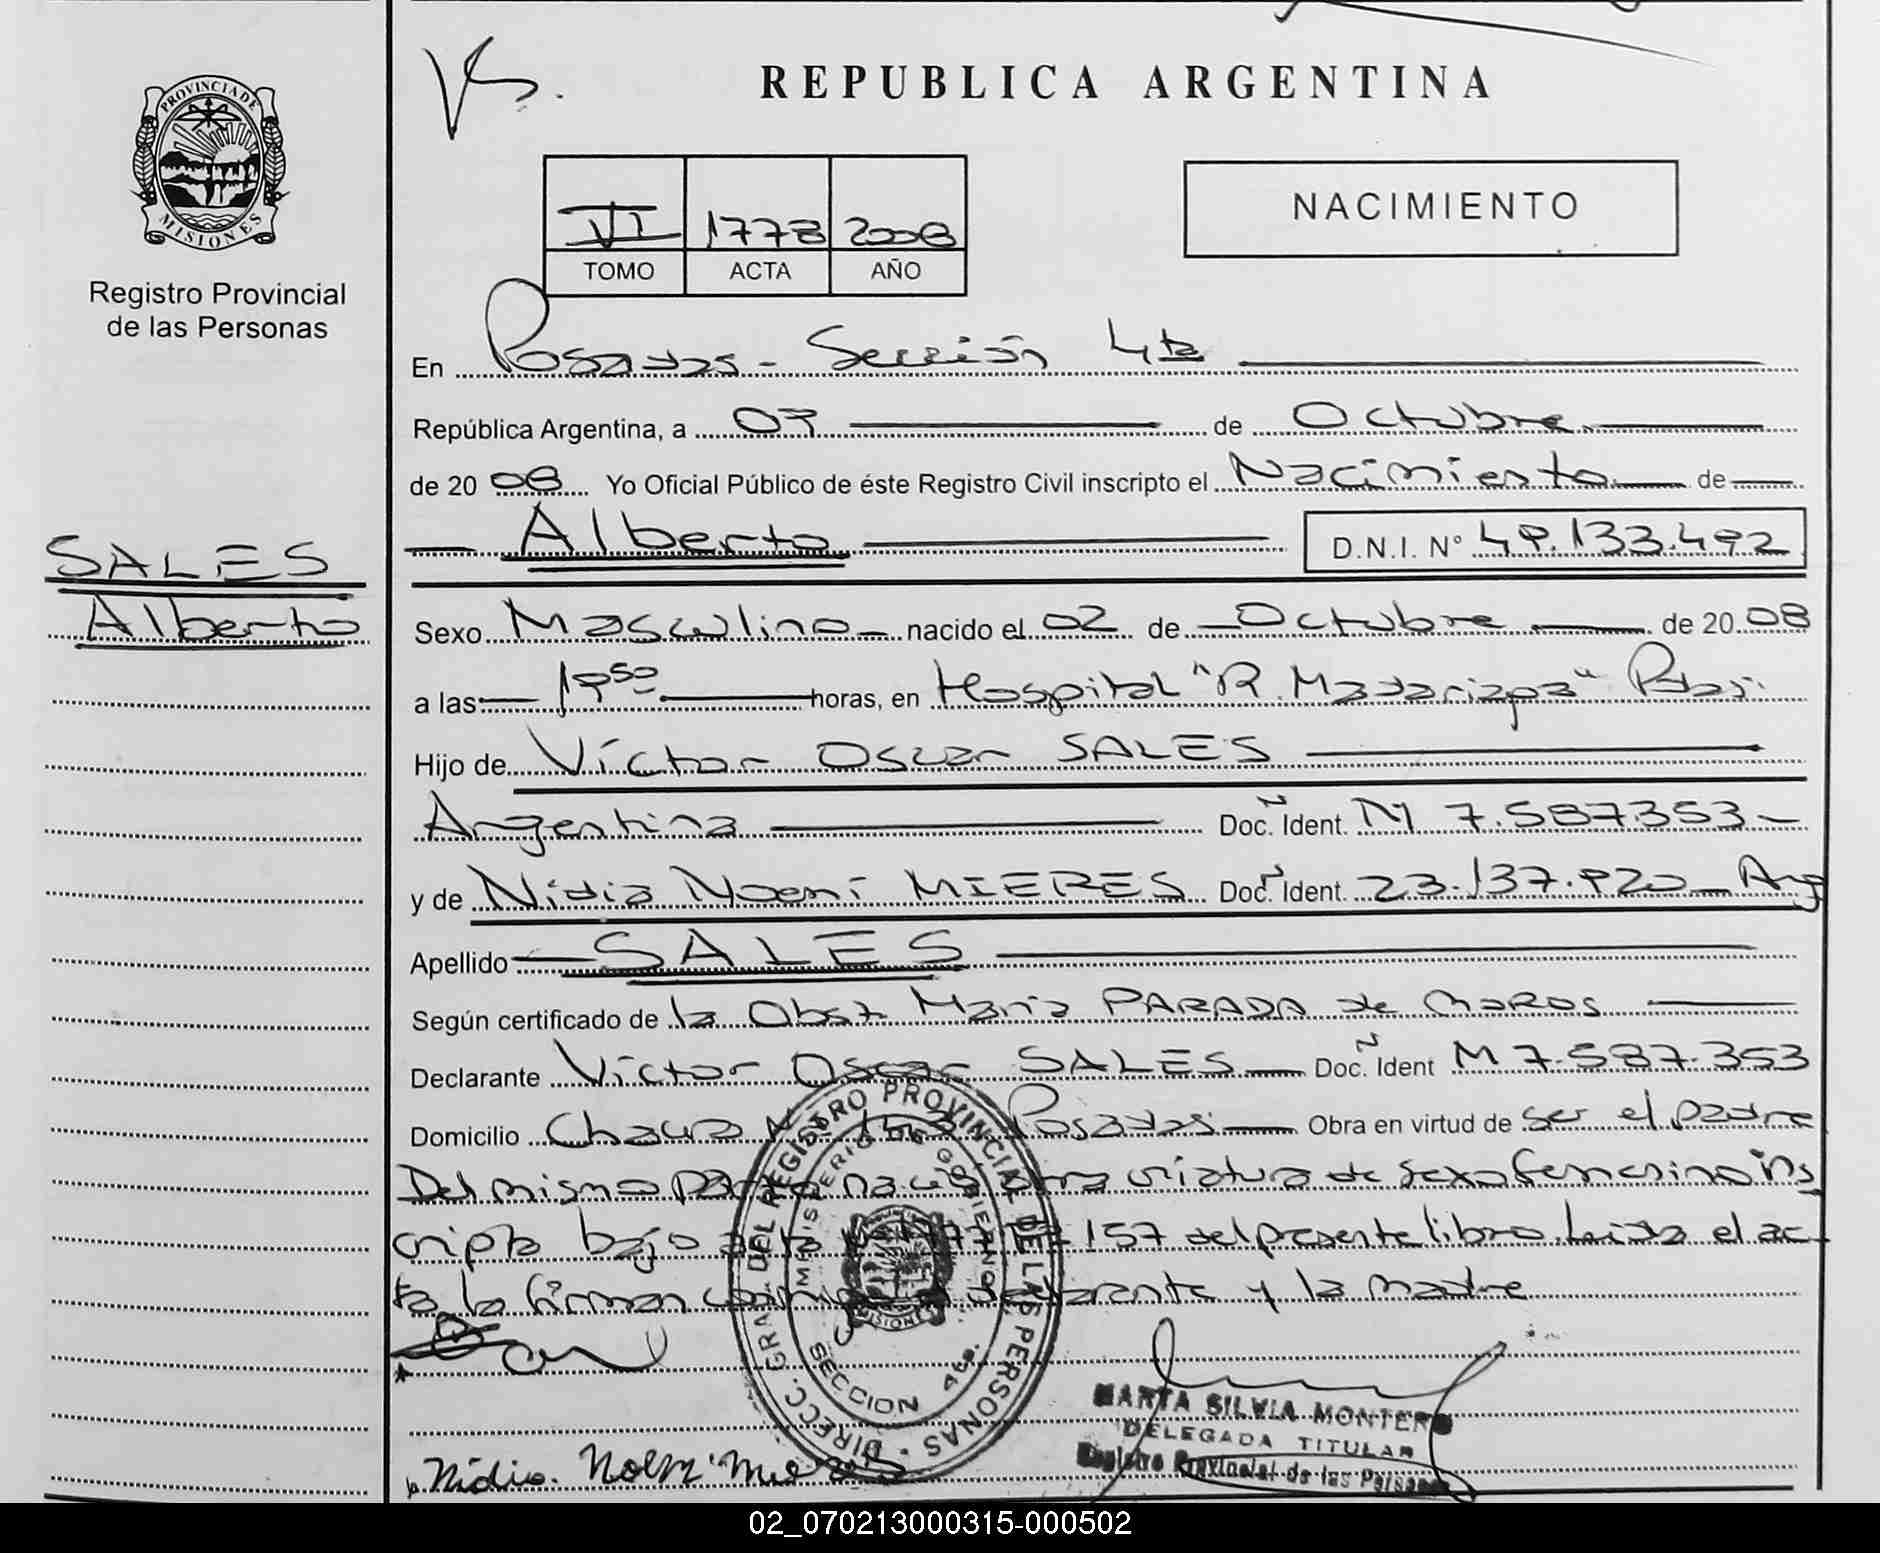 REPUBLICA ARGENTINA
PROVINCIA DE
MISIONES
Registro Provincial
de las Personas
SALES
Alberto
VI 1778 2008
TOMO ACTA AÑO
NACIMIENTO
En Posadas - Sección 4ta
República Argentina, a 03 de Octubre
de 2008 Yo Oficial Público de éste Registro Civil inscripto el Nacimiento de
Alberto D.N.I. N° 49.133.492
Sexo Masculino nacido el 02 de Octubre de 2008
a las 19 50 horas, en Hospital "R. Madariaga" Pdas.
Hijo de Víctor Oscar SALES
Argentina Doc. Ident. M 7.587.353
y de Nidia Noemí MIERES Doc. Ident. 23.137.920 Arg
Apellido SALES
Según certificado de la Obst. María PARADA de
Declarante Víctor Oscar SALES Doc. Ident M 7.587.353
Domicilio Posadas Obra en virtud de ser el padre
Del mismo parto nació otra criatura de sexo femenino ins
cripta bajo acta 1777 157 del presente libro. Leída el ac-
ta, la firman declarante y la madre
DIRECC. GRAL. DEL REGISTRO PROVINCIAL DE LAS PERSONAS
MINISTERIO DE GOBIERNO
MISIONES
SECCION 4ta.
MARTA SILVIA MONTERO
DELEGADA TITULAR
Registro Provincial de las Personas
Nidia Noemí Mieres
02_070213000315-000502